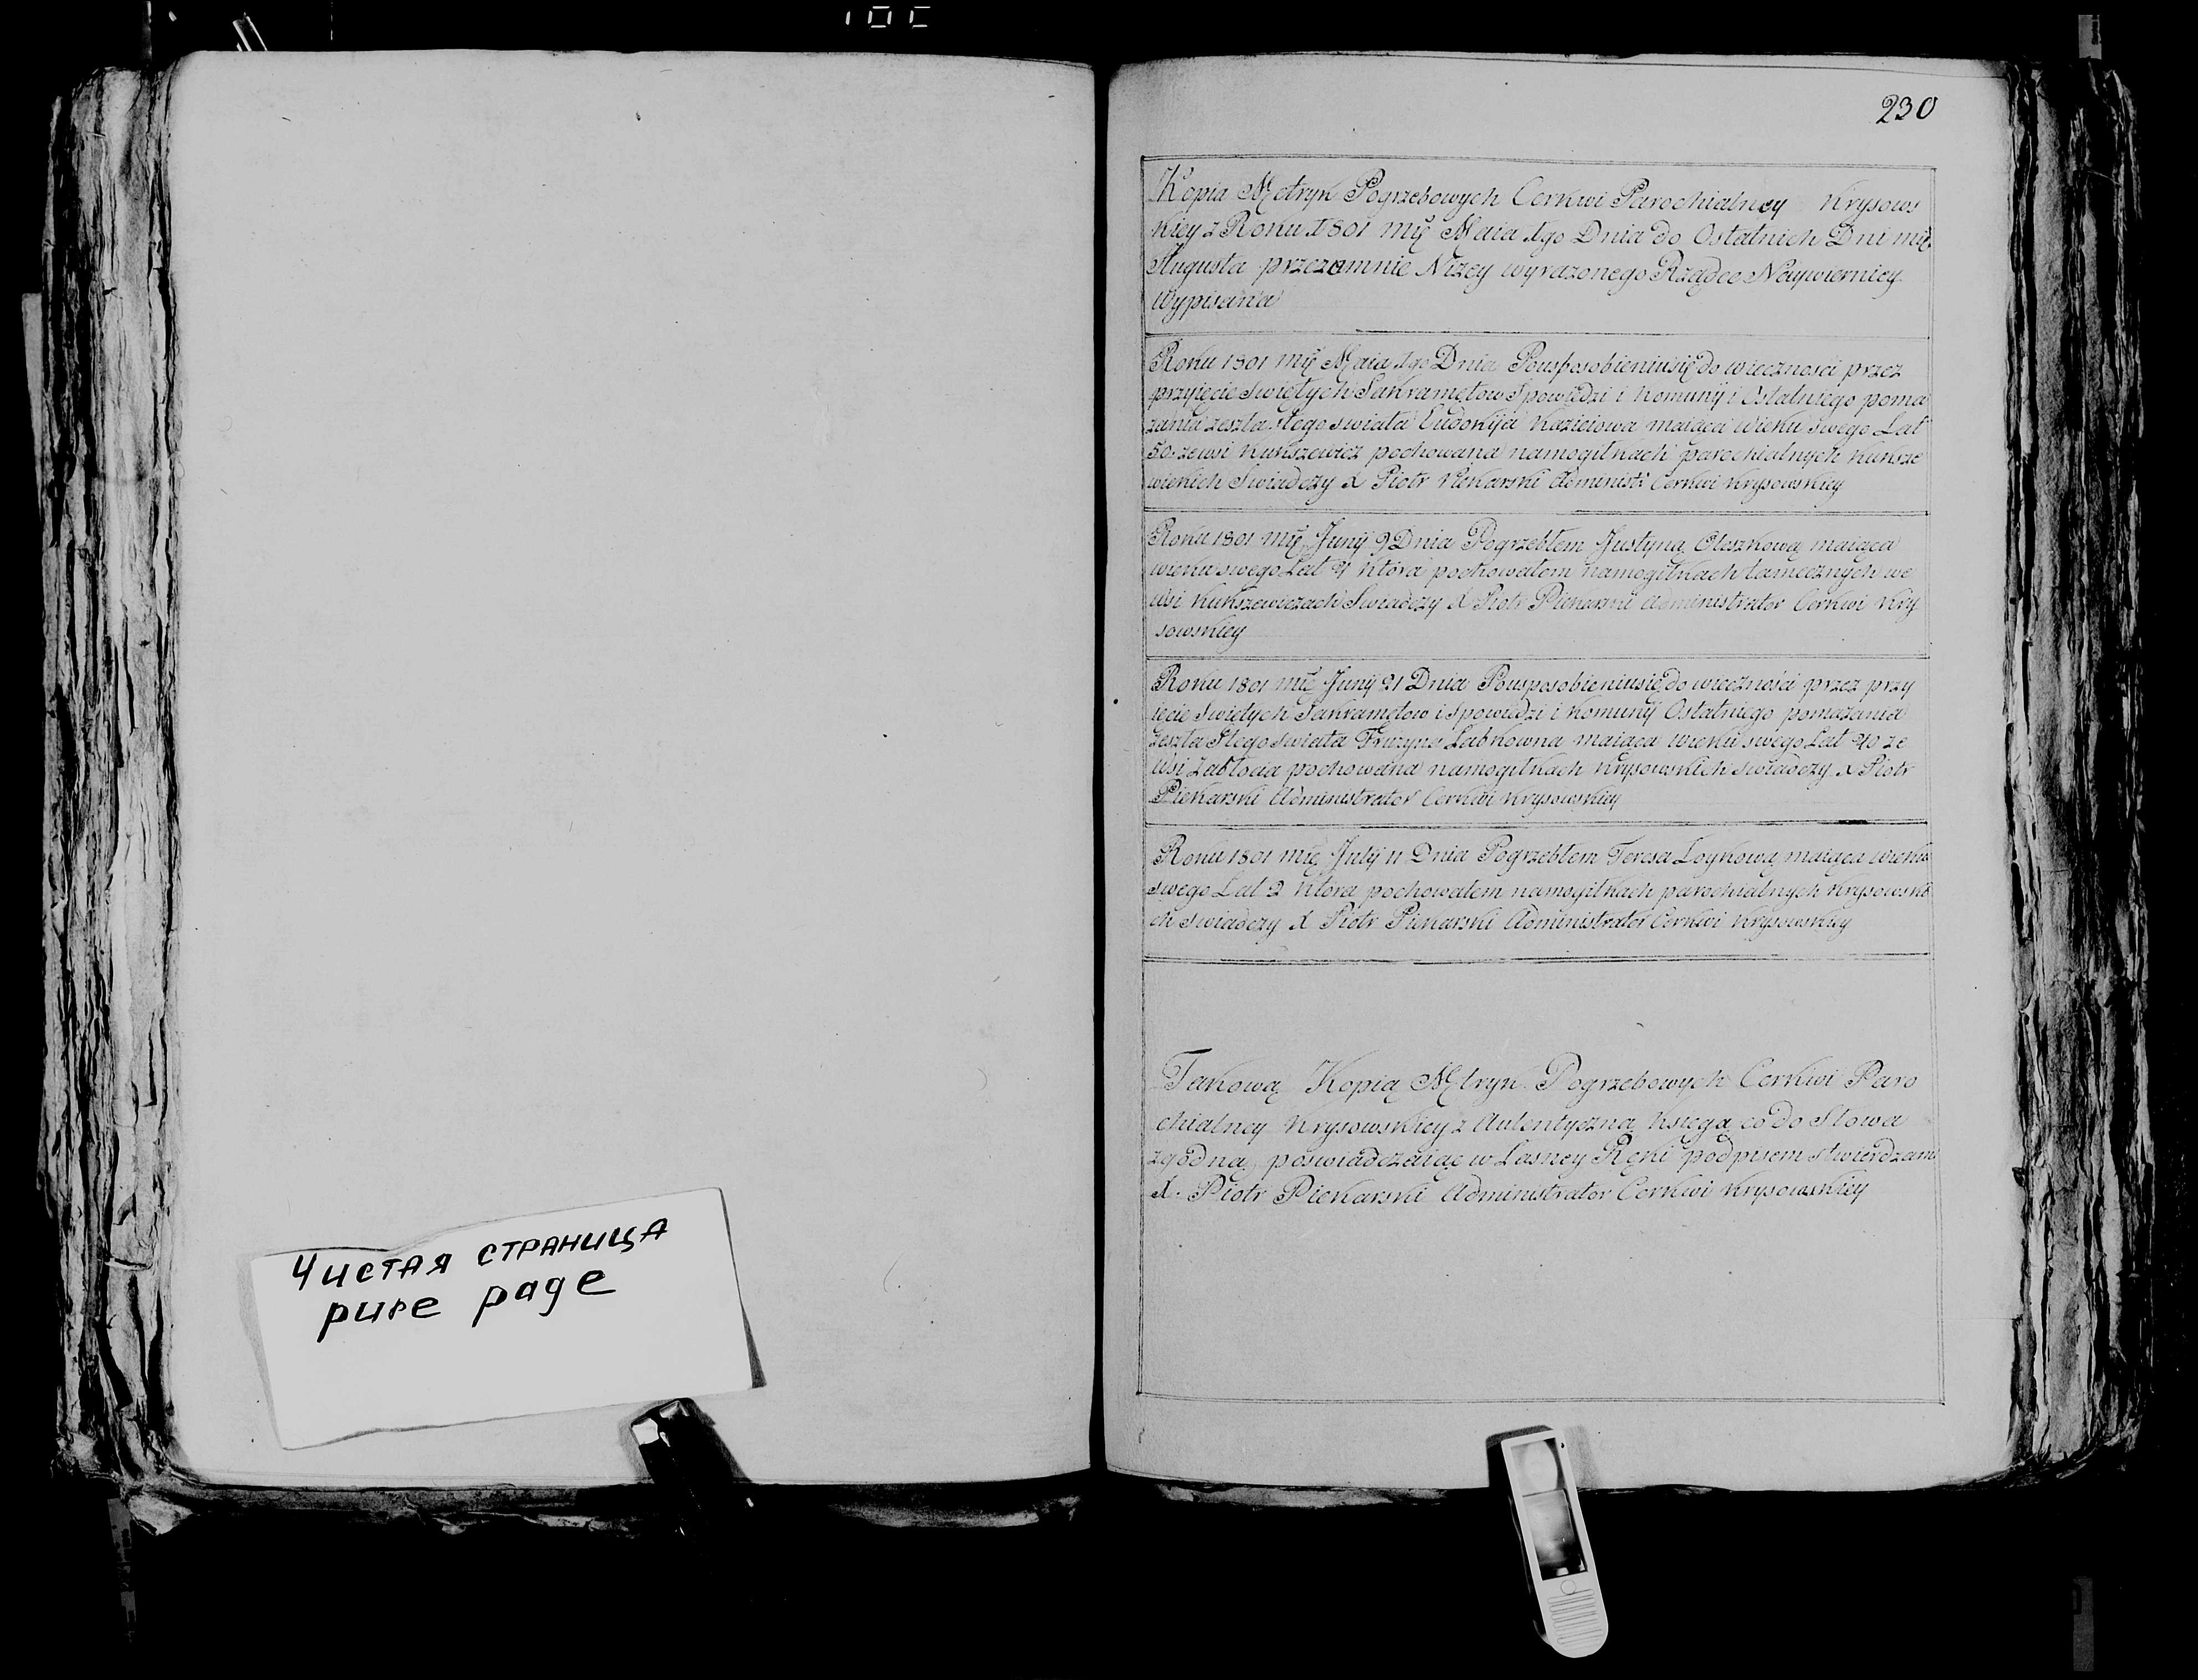 Чистая страница
pure page
230
Kopia Metryk Pogrzebowych Cerkwi Parochialney Krysows
kiey z Roku 1801 mię Maia 1go Dnia do Ostatnich Dni mię
Augusta przezomnie Nizey wyrazonego Rządce Naywierniey
Wypisana
Roku 1801 mię Maia 1go Dnia Pousposobieniusię do wiecznosci przez
przyięcie Swiętych Sakramętow Spowiedzi i Komunÿ i Ostatniego poma
zania zeszła stego swiata Eudokija maiąca wieku swego Lat
50. zewsi Kukszewicz pochowana namogiłkach parochialnych Kuksze
wickich Swiadczy X Piotr Piekarski Administ: Cerkwi Krysowskiey
Roku 1801 mię Junÿ 9 Dnia Pogrzebłem Justyną Oleszkową maiąca
wieku swego Lat która pochowałem namogiłkach tamecznych we
wsi Kukszewiczach Swiadczy X Piotr Piekarski Administrator Cerkwi Kry
sowskiey
Roku 1801 mię Junÿ 21 Dnia Pousposobieniusię do wieczności przez przy
ięcie Swiętych Sakramętow i Spowiedzi i Komunÿ Ostatniego pomazania
zeszła stego swiata Fruzyna Labkowna maiąca wieku swego Lat 40 ze
wsi Zabłocia pochowana namogiłkach Krysowskich swiadczy X Piotr
Piekarski Administrator Cerkwi Krysowskiey
Roku 1801 mię Julÿ 11 Dnia Pogrzebłem Teresa Loykową maiąca wieku
swego Lat 2 która pochowałem namogiłkach parochialnych Krysowski
ch swiadczy X Piotr Piekarski Administrator Cerkwi Krysowskiey
Takową Kopią Metryk Pogrzebowych Cerkwi Paro
chialney Krysowskiey z Autentyczną Księgą co do Słowa
zgodną, poswiadczaiąc w Lasney Ręki podpisem stwierdzam
X. Piotr Piekarski Administrator Cerkwi Krysowskiey